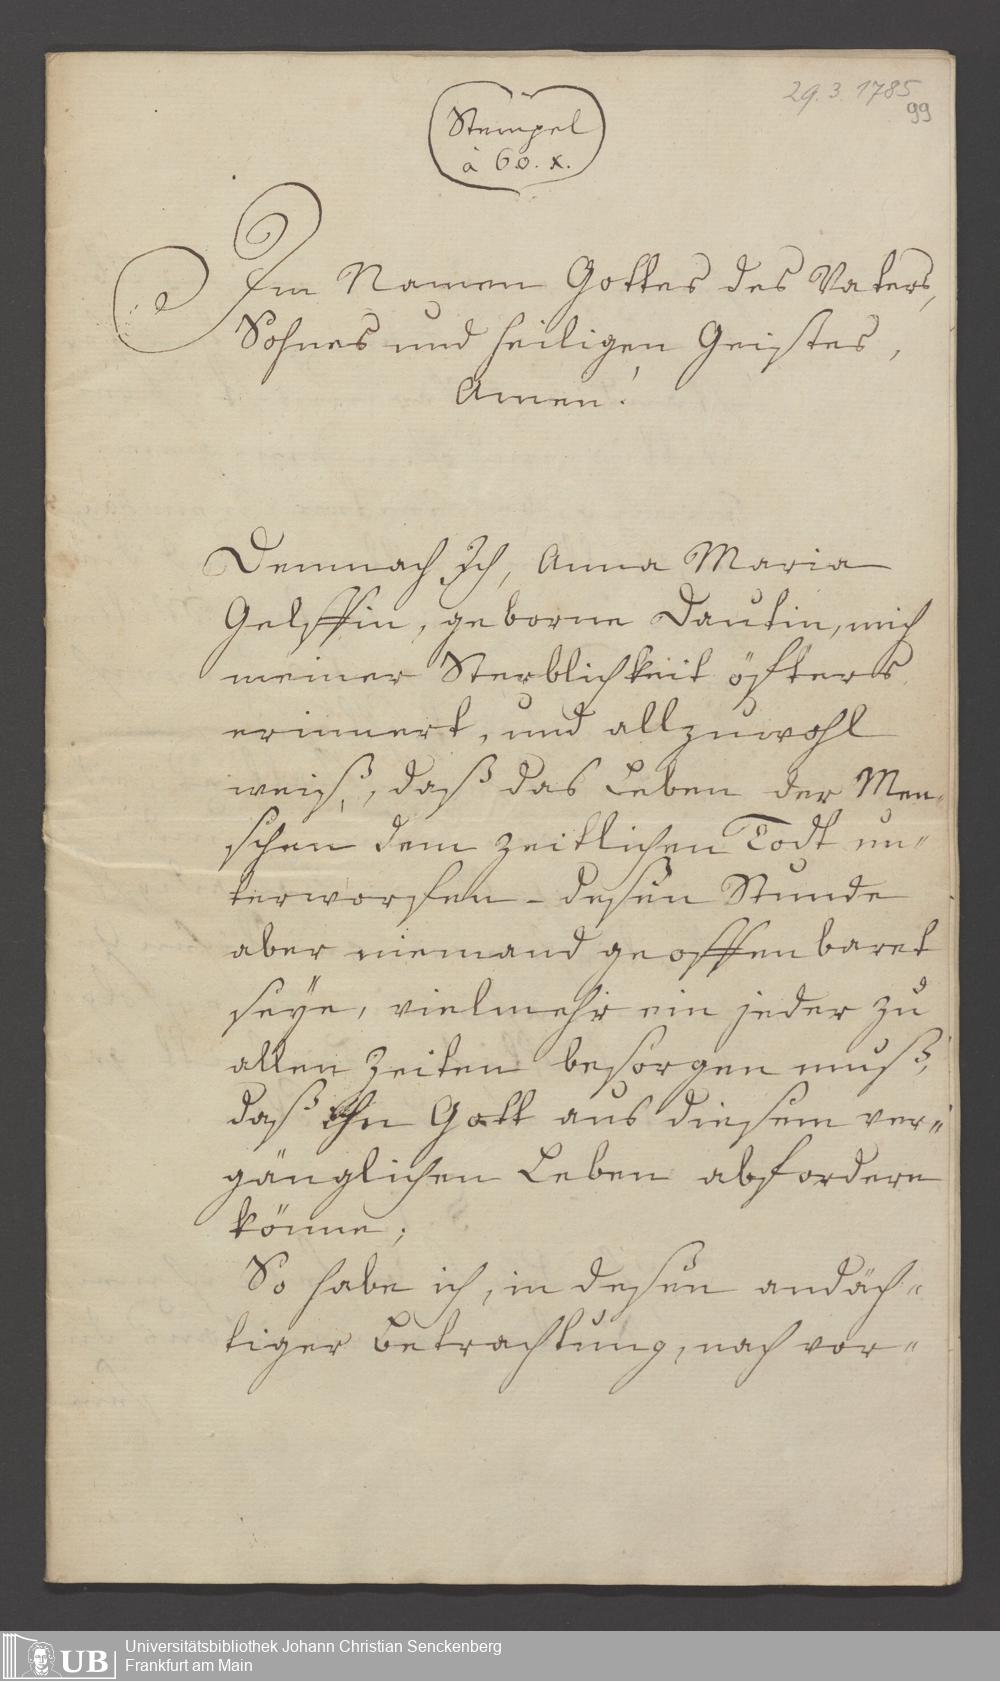 29. 3. 1785
99
Stempel
à 60. x.
Im Namen Gottes des Vaters,
Sohnes und heiligen Geistes,
Amen!
Demnach Ich, Anna Maria
Gelffin, geborne Dautin, mich
meiner Sterblichkeit öfters
erinnert, und allzuwohl
weiß, daß das Leben der Men-
schen dem zeitlichen Todt un-
terworfen - deßen Stunde
aber niemand geoffenbaret
seÿe, vielmehr ein jeder zu
allen Zeiten besorgen muß,
daß ihn Gott aus diesem ver-
gänglichen Leben abfordern
könne;
So habe ich, in deßen andäch-
tiger Betrachtung, nach vor-
UB
Universitätsbibliothek Johann Christian Senckenberg
Frankfurt am Main